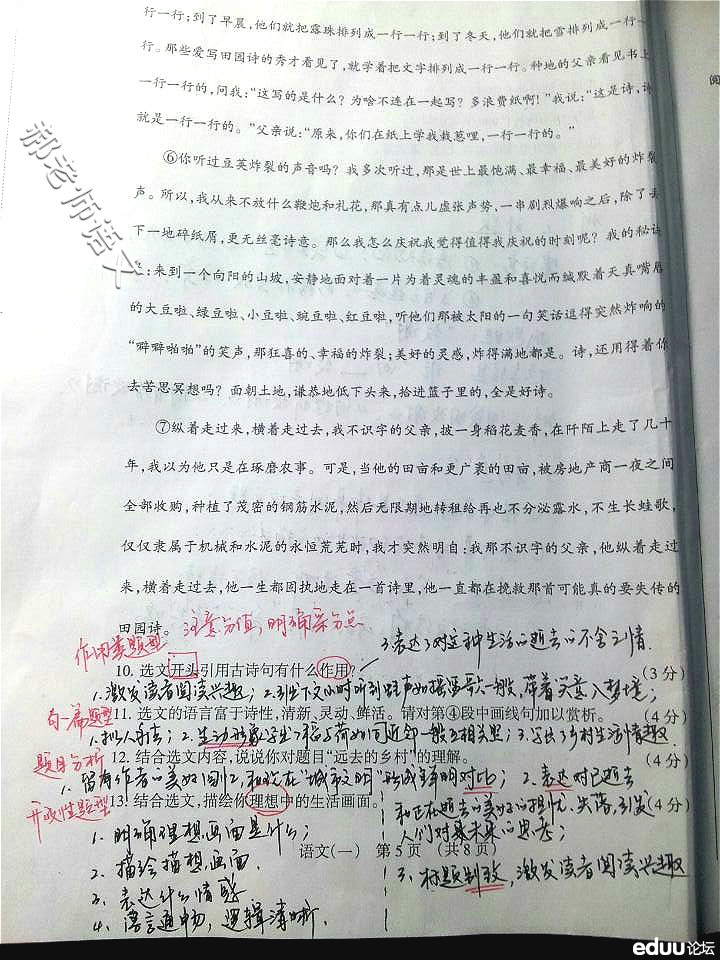 行一行;到了早晨,他们就把露珠排列成一行一行;到了冬天,他们就把雪排列成一行一
行。那些爱写田园诗的秀才看见了,就学着把文字排列成一行一行。种地的父亲看见书上
一行一行的,问我:“这写的是什么?为啥不连在一起写?多浪费纸啊!”我说:“这是诗,诗
就是一行一行的。”父亲说:“原来,你们在纸上学我栽葱哩,一行一行的。”
阅
郝老师语文
⑥你听过豆荚炸裂的声音吗?我多次听过,那是世上最饱满、最幸福、最美好的炸裂
声。所以,我从来不放什么鞭炮和礼花,那真有点儿虚张声势,一串剧烈爆响之后,除了丢
下一地碎纸屑,更无丝毫诗意。那么我怎么庆祝我觉得值得我庆祝的时刻呢?我的秘诀
是:来到一个向阳的山坡,安静地面对着一片为着灵魂的丰盈和喜悦而缄默着天真嘴唇
的大豆啦、绿豆啦、小豆啦、豌豆啦、红豆啦,听他们那被太阳的一句笑话逗得突然炸响的
“噼噼啪啪”的笑声,那狂喜的、幸福的炸裂;美好的灵感,炸得满地都是。诗,还用得着你
去苦思冥想吗?面朝土地,谦恭地低下头来,拾进篮子里的,全是好诗。
⑦纵着走过来,横着走过去,我不识字的父亲,披一身稻花麦香,在阡陌上走了几十
年,我以为他只是在琢磨农事。可是,当他的田亩和更广袤的田亩,被房地产商一夜之间
全部收购,种植了茂密的钢筋水泥,然后无限期地转租给再也不分泌露水,不生长蛙歌,
仅仅隶属于机械和水泥的永恒荒芜时,我才突然明白:我那不识字的父亲,他纵着走过
来,横着走过去,他一生都固执地走在一首诗里,他一直都在挽救那首可能真的要失传的
田园诗。 注意分值,明确采分点
作用类题型 3.表达了对这种生活的逝去的不舍之情.
10. 选文开头引用古诗句有什么作用? (3分)
1.激发读者阅读兴趣;2.引出下文小时听到蛙声如摇篮号一般,带着笑意入梦境;
句一篇题型 11. 选文的语言富于诗性,清新、灵动、鲜活。请对第④段中画线句加以赏析。 (4分)
1.拟人手法;2.生动形象写出了稻与荷如同近邻一般互相关照;3.写出了乡村生活情趣.
题目分析 12. 结合选文内容,说说你对题目“远去的乡村”的理解。 (4分)
1.留有作者的美好回忆,和现在“城市文明”形成鲜明对比; 2.表达对已逝去
开放性题型 13. 结合选文,描绘你理想中的生活画面。 (4分)
和正在逝去的美好的担忧、失落,引发
1.明确理想画面是什么; 人们对其未来的思考;
语文(一) 第5页 (共8页)
2.描绘描想画面. 3.标题别致,激发读者阅读兴趣
3.表达什么情感
4.语言通畅,逻辑清晰.
eduu论坛